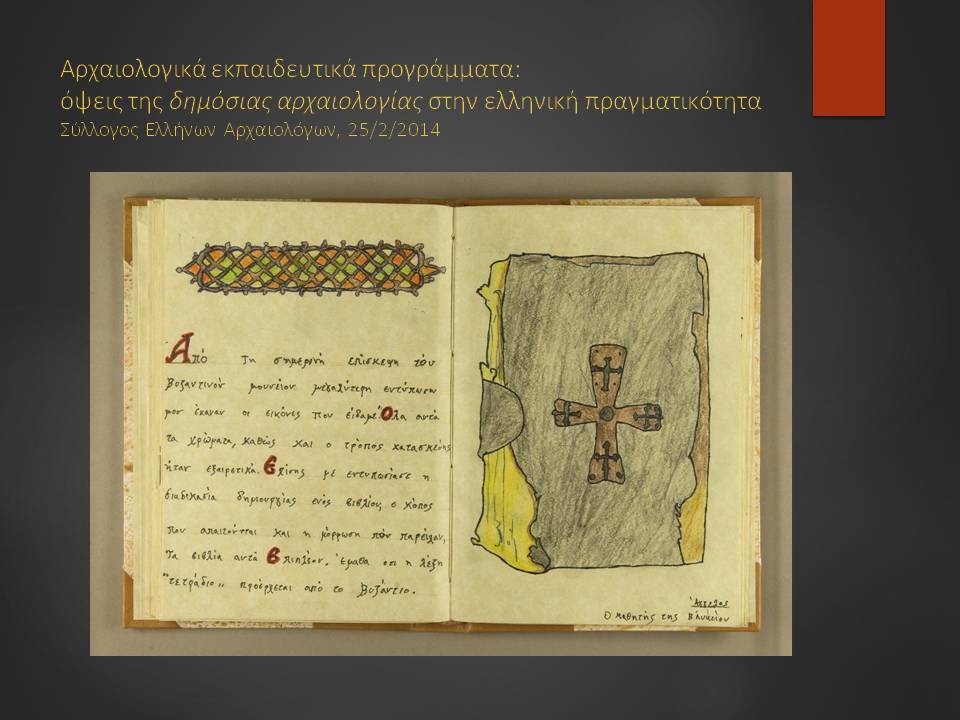 Αρχαιολογικά εκπαιδευτικά προγράμματα:
όψεις της δημόσιας αρχαιολογίας στην ελληνική πραγματικότητα
Σύλλογος Ελλήνων Αρχαιολόγων, 25/2/2014
Από τη σημερινή επίσκεψη του
Βυζαντινού μουσείου μεγαλύτερη εντύπωση
μου έκαναν οι εικόνες που είδαμε Όλα αυτά
τα χρώματα, καθώς και ο τρόπος κατασκευής
ήταν εξαιρετικά. Επίσης με εντυπωσίασε η
διαδικασία δημιουργίας ενός βιβλίου, ο κόπος
που απαιτούνται και η μόρφωση που παρείχαν,
Τα βιβλία αυτά Επιπλέον, έμαθα οτι η λέξη
"τετράδιο" προέρχεται από το Βυζάντιο.
Άγγελος
Ο μαθητής της Β' λυκείου